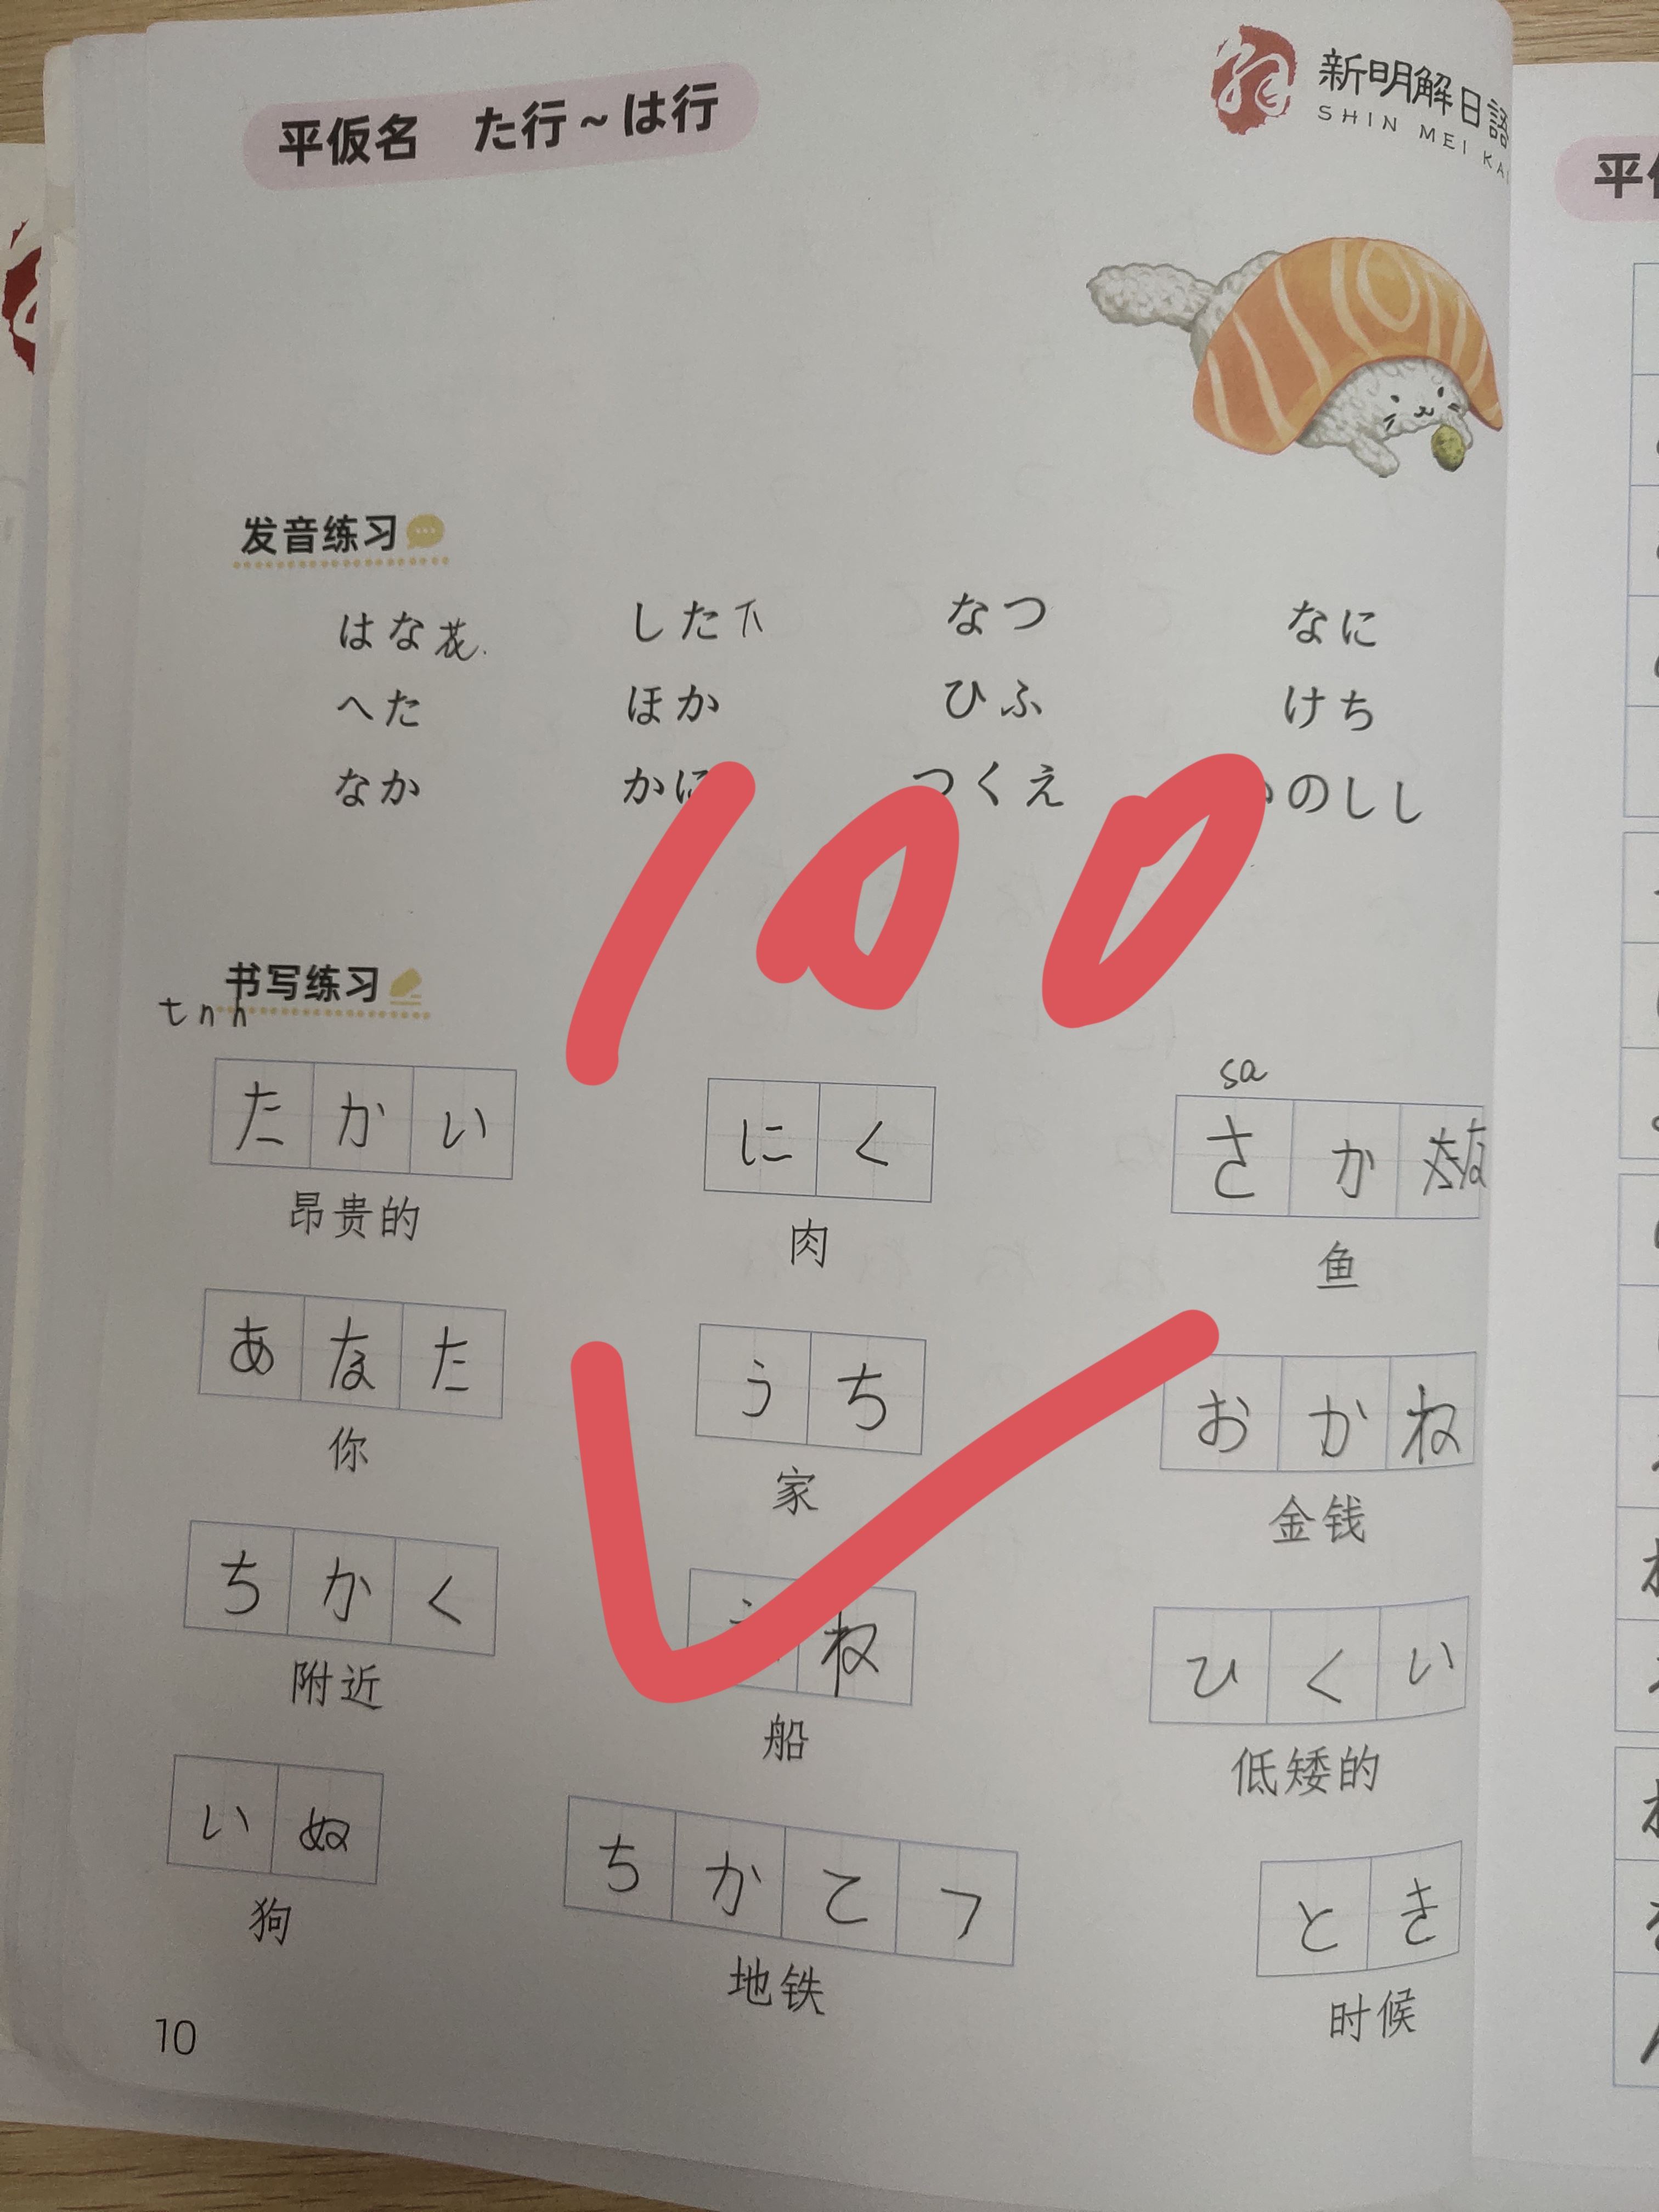 平仮名 た行~は行
新明解日語
SHIN MEI KA
平
发音练习
はな花 した下 なつ なに
へた ほか ひふ けち
なか かに つくえ のしし
100
书写练习
t n h
sa
たかい にく さかな
昂贵的 肉 鱼
あなた うち おかね
你 家 金钱
ちかく ね ひくい
附近 船 低矮的
いぬ ちかてつ とき
狗 地铁 时候
10